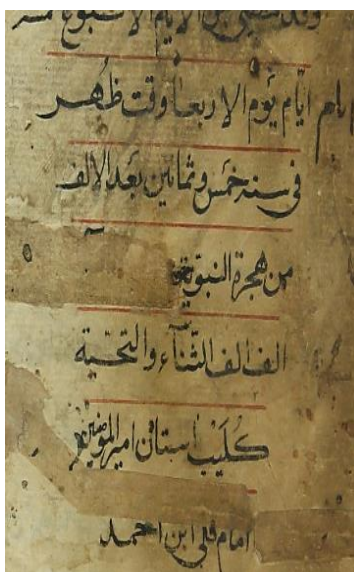 وقد مضى من الايام الاسبوع
ايام يوم الاربعا وقت ظهر
فى سنه خمس وثمانين بعد الالف
من هجرة النبوية
الف الف الثناء والتحية
كليب استان امير المؤمنين
امام قلى ابن احمد